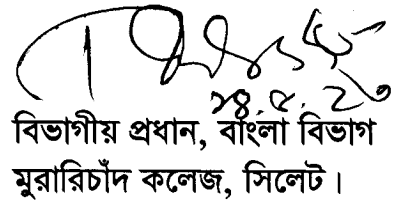 ২৪.৫.২৩
বিভাগীয় প্রধান, বাংলা বিভাগ
মুরারিচাঁদ কলেজ, সিলেট।